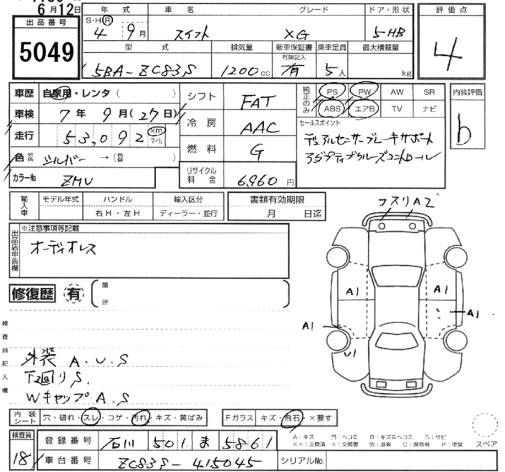 6月12日
出品番号
5049
S・H・R 年式 車名 グレード ドア・形状
4年 9月 スイフト XG 5-HB
型式 排気量 新車保証書 乗車定員 最大積載量
有無記入
5BA-ZC83S 1200cc 有 5人 kg
評価点
4
車歴 自家用・レンタ( )
車検 7年 9月(27日)
走行 53,092 km マイル
色 シルバー → ( )
カラーNo ZMU
シフト FAT
冷房 AAC
燃料 G
リサイクル料金 6,960円
純正のみ
PS PW AW SR
ABS エアB TV ナビ
セールスポイント
デュアルセンサーブレーキサポート
アダプティブクルーズコントロール
内装評価
b
輸入車 モデル年式 ハンドル 輸入区分
右H・左H ディーラー・並行
書類有効期限
月 日迄
出品店申告欄
※注意事項等記載
オーディオレス
修復歴 有
検査員記入欄
外装 A.U.S
下回りS.
WキャップA.S
フスリA2
A1 A1
A1
U1
内装シート 穴・破れ・スレ・コゲ・汚れ・キズ・黄ばみ
Fガラス キズ・飛石・×要す
スペア
検査員 18
登録番号 石川 501 ま 5861
車台番号 ZC83S-415045 シリアルNo